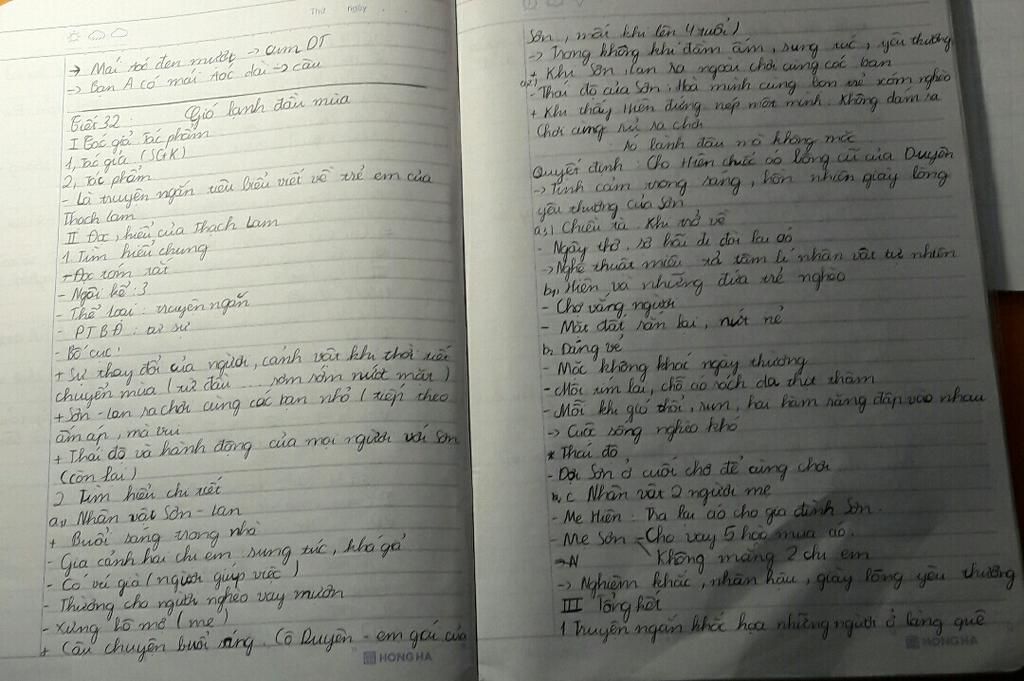 Thứ ngày
→ Mái tóc đen mượt → cụm DT
→ Bạn A có mái tóc dài → câu
Tiết 32: Gió lạnh đầu mùa
I Tác giả tác phẩm
1, Tác giả (SGK)
2, Tác phẩm
- Là truyện ngắn tiêu biểu viết về trẻ em của
Thạch Lam
II Đọc, hiểu của Thạch Lam
1 Tìm hiểu chung
- Đọc tóm tắt
- Ngôi kể: 3
- Thể loại: truyện ngắn
- PTBĐ: tự sự
- Bố cục:
+ Sự thay đổi của người, cảnh vật khi thời tiết
chuyển mùa (từ đầu .... sơm sớm nước mắt)
+ Sơn - Lan ra chơi cùng các bạn nhỏ (tiếp theo
ấm áp, mà vui
+ Thái độ và hành động của mọi người với Sơn
(còn lại)
2 Tìm hiểu chi tiết
a, Nhân vật Sơn - Lan
+ Buổi sáng trong nhà
- Gia cảnh hai chị em sung túc, khá giả
- Có vú già (người giúp việc)
- Thường cho người nghèo vay mượn
- Xưng hô mợ (mẹ)
+ Câu chuyện buổi sáng. Cô Duyên - em gái của
HONG HA
Sơn, mất khi lên 4 tuổi)
→ Trong không khí đầm ấm, sung túc, yêu thương
+ Khi Sơn, Lan ra ngoài chơi cùng các bạn
- Thái độ của Sơn: Hoà mình cùng bọn trẻ xóm nghèo
+ Khi thấy Hiên đứng nép một mình. Không dám ra
chơi cùng rủ ra chơi
lạnh đâu nó không mặc
Quyết định: Cho Hiên chiếc áo bông cũ của Duyên
→ Tình cảm trong sáng, hồn nhiên giàu lòng
yêu thương của Sơn
a3) Chiều tà. Khi trở về
- Ngây thơ, sợ hãi đi đòi lại áo
→ Nghệ thuật miêu tả tâm lí nhân vật tự nhiên
b, Hiên và những đứa trẻ nghèo
- Chợ vắng người
- Mặt đất rắn lại, nứt nẻ
b. Dáng vẻ
- Mặc không khác ngày thường
- Môi tím lại, chỗ áo rách da thịt thâm
- Mỗi khi gió thổi, run, hai hàm răng đập vào nhau
→ Cuộc sống nghèo khó
* Thái độ
- Đợi Sơn ở cuối chợ để cùng chơi
c Nhân vật 2 người mẹ
- Mẹ Hiên: Trả lại áo cho gia đình Sơn.
- Mẹ Sơn - Cho vay 5 hào mua áo.
→ N Không mắng 2 chị em
→ Nghiêm khắc, nhân hậu, giàu lòng yêu thương
III Tổng kết
1 Truyện ngắn khắc họa những người ở làng quê
HONG HA